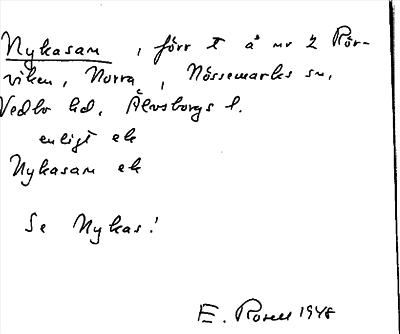 Nykasam, förr t å nr 2 Rör-
viken, Norra, Nössemarks sn,
Vedbo hd, Älvsborgs l.
enligt ek
Nykasam ek
Se Nykas!
E. Rosell 1948